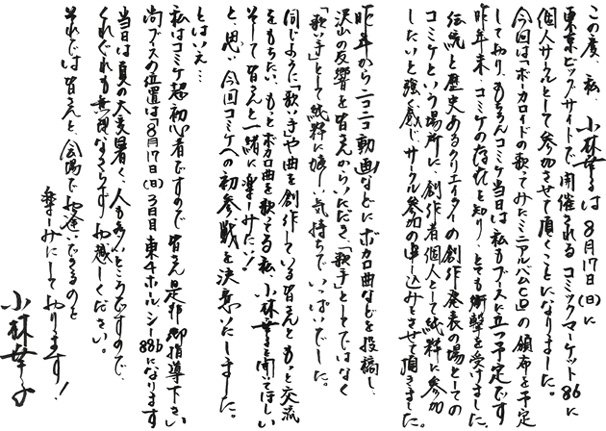 この度、私、小林幸子は8月17日(日)に
東京ビッグサイトで開催されるコミックマーケット86に
個人サークルとして参加させて頂くことになりました。
今回は「ボーカロイドの歌ってみたミニアルバムCD」の頒布を予定
しており、もちろんコミケ当日は私もブースに立つ予定です
昨年末、コミケの存在を知り、とても衝撃を受けました。
伝統と歴史あるクリエイターの創作発表の場としての
コミケという場所に、創作者個人として純粋に参加
したいと強く感じサークル参加の申し込みをさせて頂きました。
昨年からニコニコ動画などにボカロ曲などを投稿し、
沢山の反響を皆さんからいただき「歌手」としてではなく
「歌い手」として純粋に嬉しい気持ちでいっぱいでした。
同じように「歌い手」や曲を創作している皆さんともっと交流
をもちたい、もっとボカロ曲を歌ってる私、小林幸子を聞いてほしい
そして皆さんと一緒に楽しみたい!
と、思い今回コミケへの初参戦を決意いたしました。
とはいえ…
私はコミケ超初心者ですので皆さん是非御指導下さい
尚ブースの位置は「8月17日(日)3日目東4ホールシ-88b」になります
当日は真夏の大変暑く、人も多いところですので、
くれぐれも無理なさらずお越しください。
それでは皆さんと、会場でお逢いできるのを
楽しみにしております!
小林幸子